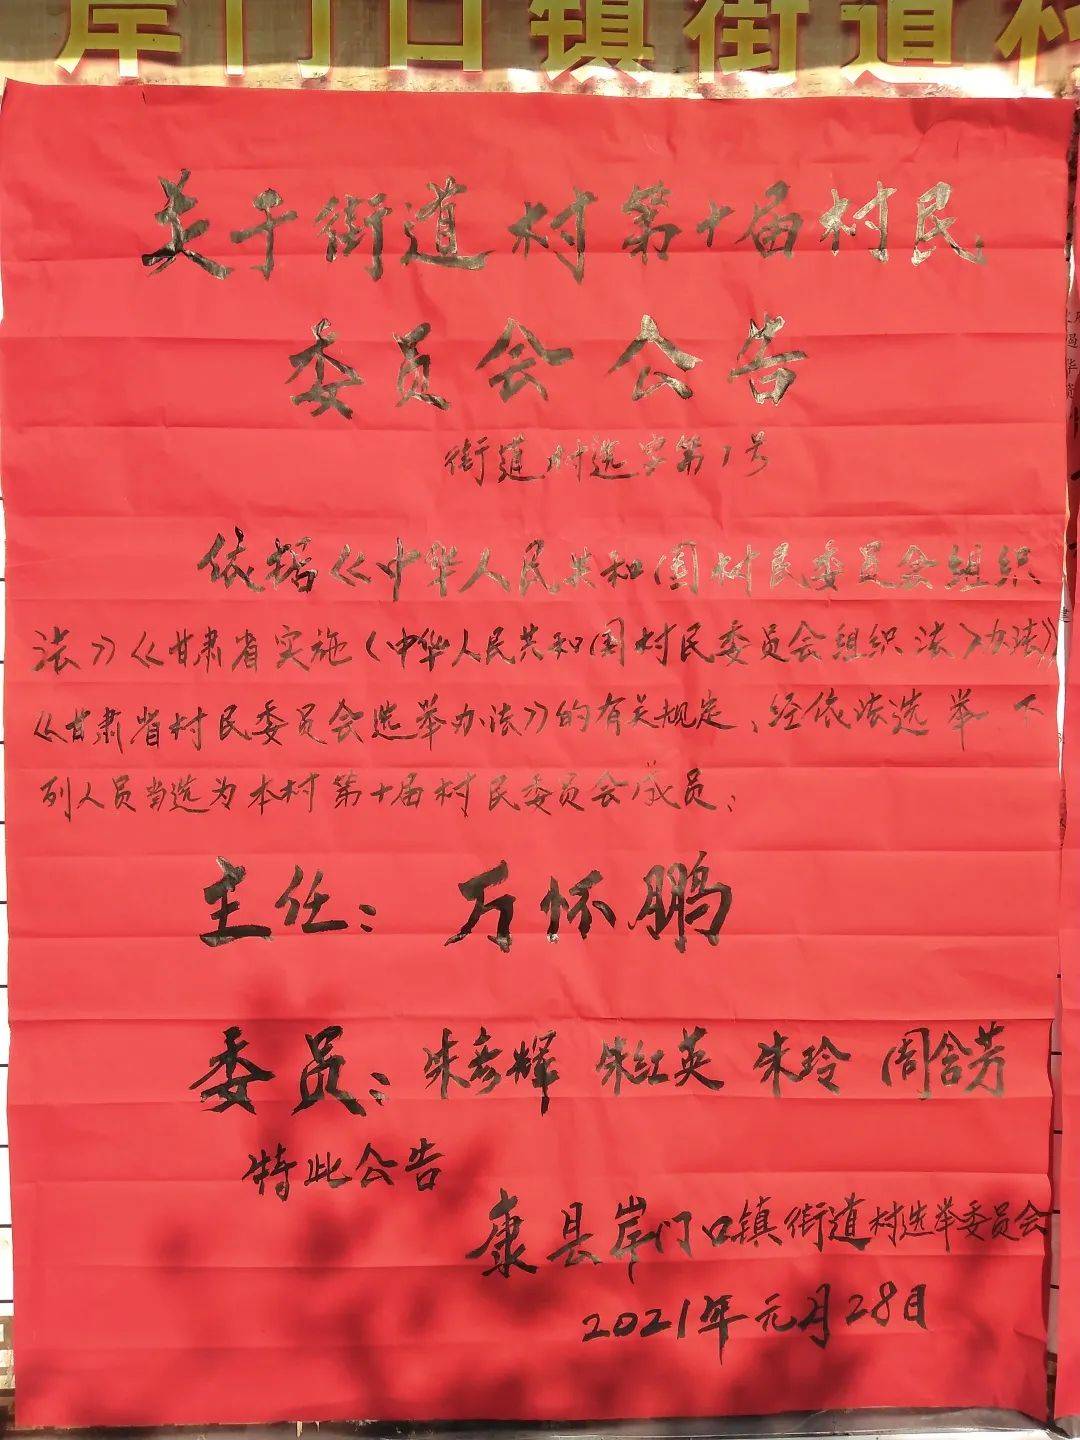 岸门口镇街道村
关于街道村第十届村民
委员会公告
街道村选字第1号
依据《中华人民共和国村民委员会组织
法》《甘肃省实施〈中华人民共和国村民委员会组织法〉办法》
《甘肃省村民委员会选举办法》的有关规定、经依法选举下
列人员当选为本村第十届村民委员会成员:
主任: 万怀鹏
委员: 朱彦辉 朱红英 朱玲 周含芳
特此公告
康县岸门口镇街道村选举委员会
2021年元月28日